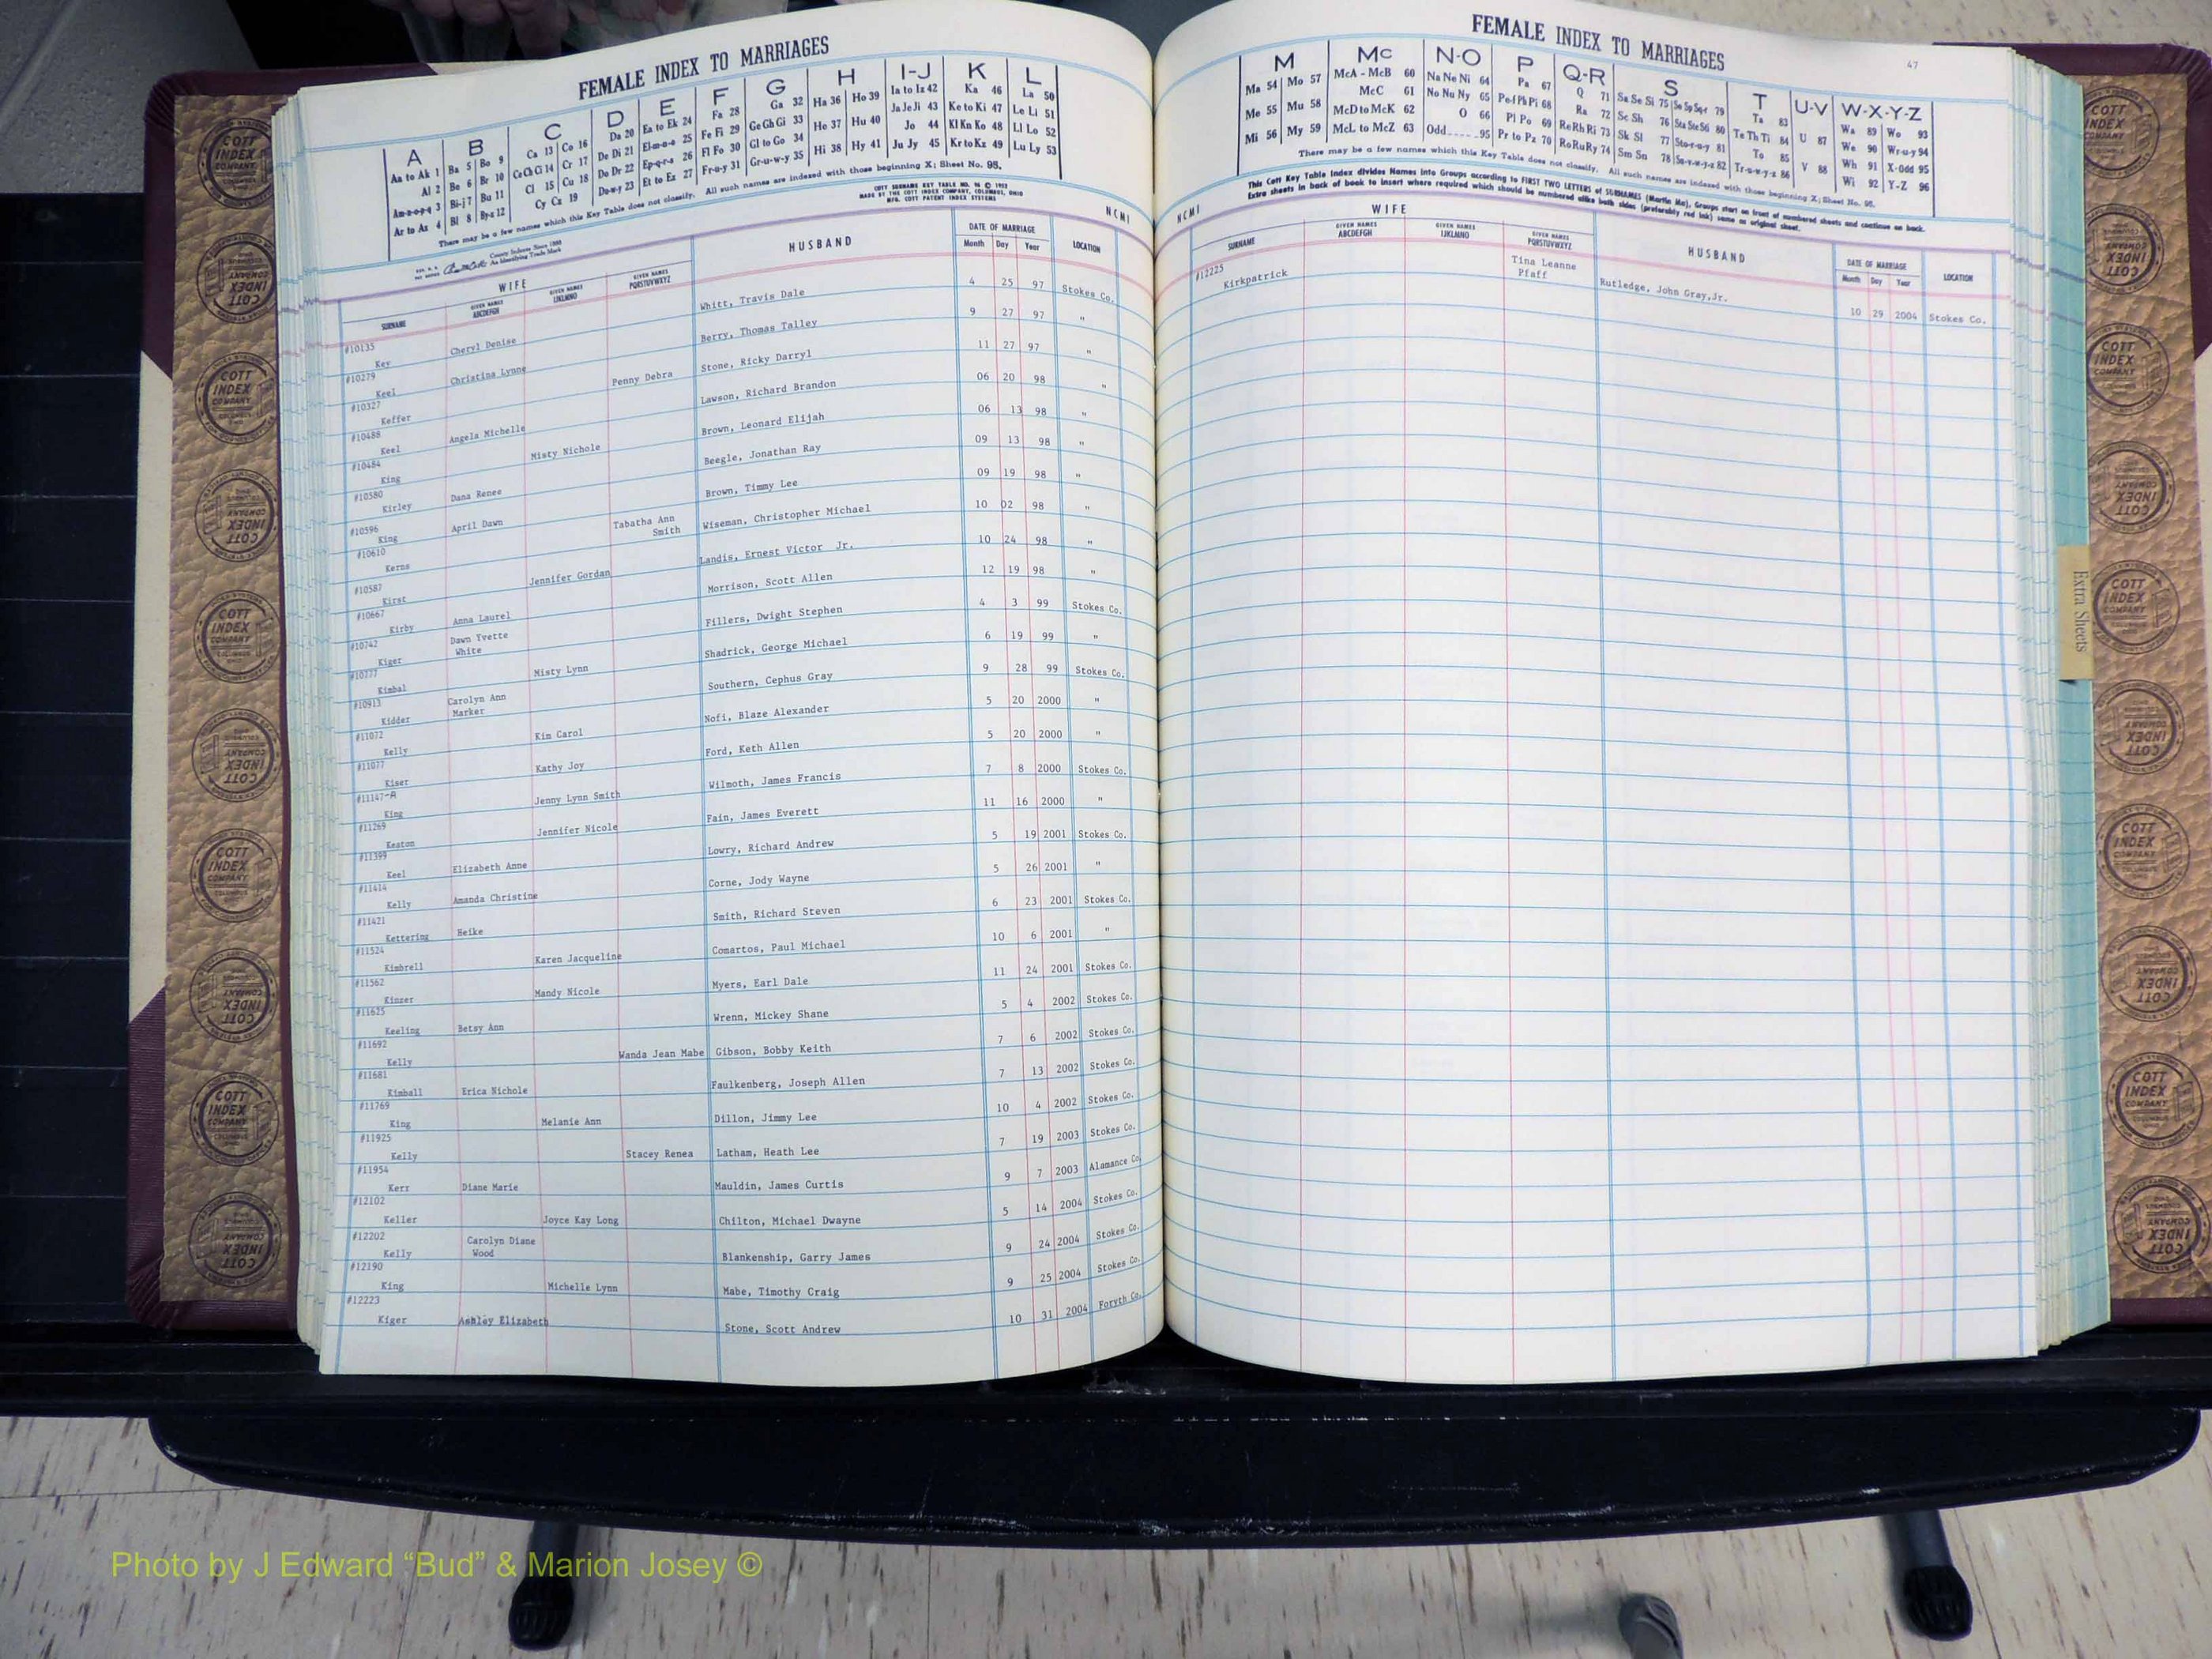 FEMALE INDEX TO MARRIAGES
A B C D E F G H I-J K L
Aa to Ak 1 Ba 5 Bo 9 Ca 13 Co 16 Da 20 Ea to Ek 24 Fa 28 Ga 32 Ha 36 Ho 39 Ia to Iz 42 Ka 46 La 50
Al 2 Be 6 Br 10 Ce Ch Ci 14 Cr 17 De Di 21 El-m-n-o 25 Fe Fi 29 Ge Gh Gi 33 He 37 Hu 40 Ja Je Ji 43 Ke to Ki 47 Le Li 51
Am-n-o-p-q 3 Bi-j 7 Bu 11 Cl 15 Cu 18 Do Dr 22 Ep-q-r-s 26 Fl Fo 30 Gl to Go 34 Hi 38 Hy 41 Jo 44 Kl Kn Ko 48 Ll Lo 52
Ar to Az 4 Bl 8 By-z 12 Cy Cz 19 Du-w-y 23 Et to Ez 27 Fr-u-y 31 Gr-u-w-y 35 Ju Jy 45 Kr to Kz 49 Lu Ly 53
There may be a few names which this Key Table does not classify. All such names are indexed with those beginning X; Sheet No. 95.
COTT SURNAME KEY TABLE NO. 96 © 1953
MADE BY THE COTT INDEX COMPANY, COLUMBUS, OHIO
MFG. COTT PATENT INDEX SYSTEMS
County Indexes Since 1888
An Identifying Trade Mark
NCMI
WIFE HUSBAND DATE OF MARRIAGE LOCATION
SURNAME GIVEN NAMES ABCDEFGH GIVEN NAMES IJKLMNO GIVEN NAMES PQRSTUVWXYZ Month Day Year
#10135 Key Cheryl Denise Whitt, Travis Dale 4 25 97 Stokes Co.
#10279 Keel Christina Lynne Berry, Thomas Talley 9 27 97 "
#10327 Keffer Penny Debra Stone, Ricky Darryl 11 27 97 "
#10488 Keel Angela Michelle Lawson, Richard Brandon 06 20 98 "
#10484 King Misty Nichole Brown, Leonard Elijah 06 13 98 "
#10580 Kirley Dana Renee Beegle, Jonathan Ray 09 13 98 "
#10596 King April Dawn Brown, Timmy Lee 09 19 98 "
#10610 Kerns Tabatha Ann Smith Wiseman, Christopher Michael 10 02 98 "
#10587 Kirst Jennifer Gordan Landis, Ernest Victor Jr. 10 24 98 "
#10667 Kirby Anna Laurel Morrison, Scott Allen 12 19 98 "
#10742 Kiger Dawn Yvette White Fillers, Dwight Stephen 4 3 99 Stokes Co.
#10777 Kimbal Misty Lynn Shadrick, George Michael 6 19 99 "
#10913 Kidder Carolyn Ann Marker Southern, Cephus Gray 9 28 99 Stokes Co.
#11072 Kelly Kim Carol Nofi, Blaze Alexander 5 20 2000 "
#11077 Kiser Kathy Joy Ford, Keth Allen 5 20 2000 "
#11147-A King Jenny Lynn Smith Wilmoth, James Francis 7 8 2000 Stokes Co.
#11269 Keaton Jennifer Nicole Fain, James Everett 11 16 2000 "
#11399 Keel Elizabeth Anne Lowry, Richard Andrew 5 19 2001 Stokes Co.
#11414 Kelly Amanda Christine Corne, Jody Wayne 5 26 2001 "
#11421 Kettering Heike Smith, Richard Steven 6 23 2001 Stokes Co.
#11524 Kimbrell Karen Jacqueline Comartos, Paul Michael 10 6 2001 "
#11562 Kinzer Mandy Nicole Myers, Earl Dale 11 24 2001 Stokes Co.
#11625 Keeling Betsy Ann Wrenn, Mickey Shane 5 4 2002 Stokes Co.
#11692 Kelly Wanda Jean Mabe Gibson, Bobby Keith 7 6 2002 Stokes Co.
#11681 Kimball Erica Nichole Faulkenberg, Joseph Allen 7 13 2002 Stokes Co.
#11769 King Melanie Ann Dillon, Jimmy Lee 10 4 2002 Stokes Co.
#11925 Kelly Stacey Renea Latham, Heath Lee 7 19 2003 Stokes Co.
#11954 Kerr Diane Marie Mauldin, James Curtis 9 7 2003 Alamance Co.
#12102 Keller Joyce Kay Long Chilton, Michael Dwayne 5 14 2004 Stokes Co.
#12202 Kelly Carolyn Diane Wood Blankenship, Garry James 9 24 2004 Stokes Co.
#12190 King Michelle Lynn Mabe, Timothy Craig 9 25 2004 Stokes Co.
#12223 Kiger Ashley Elizabeth Stone, Scott Andrew 10 31 2004 Foryth Co.
FEMALE INDEX TO MARRIAGES
47
M Mc N-O P Q-R S T U-V W-X-Y-Z
Ma 54 Mo 57 McA - McB 60 Na Ne Ni 64 Pa 67 Q 71 Sa Se Si 75 79 Ta 83 U 87 Wa 89 Wo 93
Me 55 Mu 58 McC 61 No Nu Ny 65 Pe-f Ph Pi 68 Ra 72 Sc Sh 76 Sta Ste Sti 80 Te Th Ti 84 V 88 We 90 Wr-u-y 94
Mi 56 My 59 McD to McK 62 O 66 Pl Po 69 Re Rh Ri 73 Sk Sl 77 Sto-r-u-y 81 To 85 Wh 91 X-Odd 95
McL to McZ 63 Odd 95 Pr to Pz 70 Ro Ru Ry 74 Sm Sn 78 Su-v-w-y-z 82 Tr-u-w-y-z 86 Wi 92 Y-Z 96
There may be a few names which this Key Table does not classify. All such names are indexed with those beginning X; Sheet No. 95.
This Cott Key Table Index divides Names into Groups according to FIRST TWO LETTERS of SURNAMES (Martin Ma), Groups start on front of numbered sheets and continue on back.
Extra sheets in back of book to insert where required which should be numbered alike both sides (preferably red ink) same as original sheet.
NCMI
WIFE HUSBAND DATE OF MARRIAGE LOCATION
SURNAME GIVEN NAMES ABCDEFGH GIVEN NAMES IJKLMNO GIVEN NAMES PQRSTUVWXYZ Month Day Year
#12225 Kirkpatrick Tina Leanne Pfaff Rutledge, John Gray,Jr. 10 29 2004 Stokes Co.
Extra Sheets
COTT INDEX COMPANY
Photo by J Edward “Bud” & Marion Josey ©